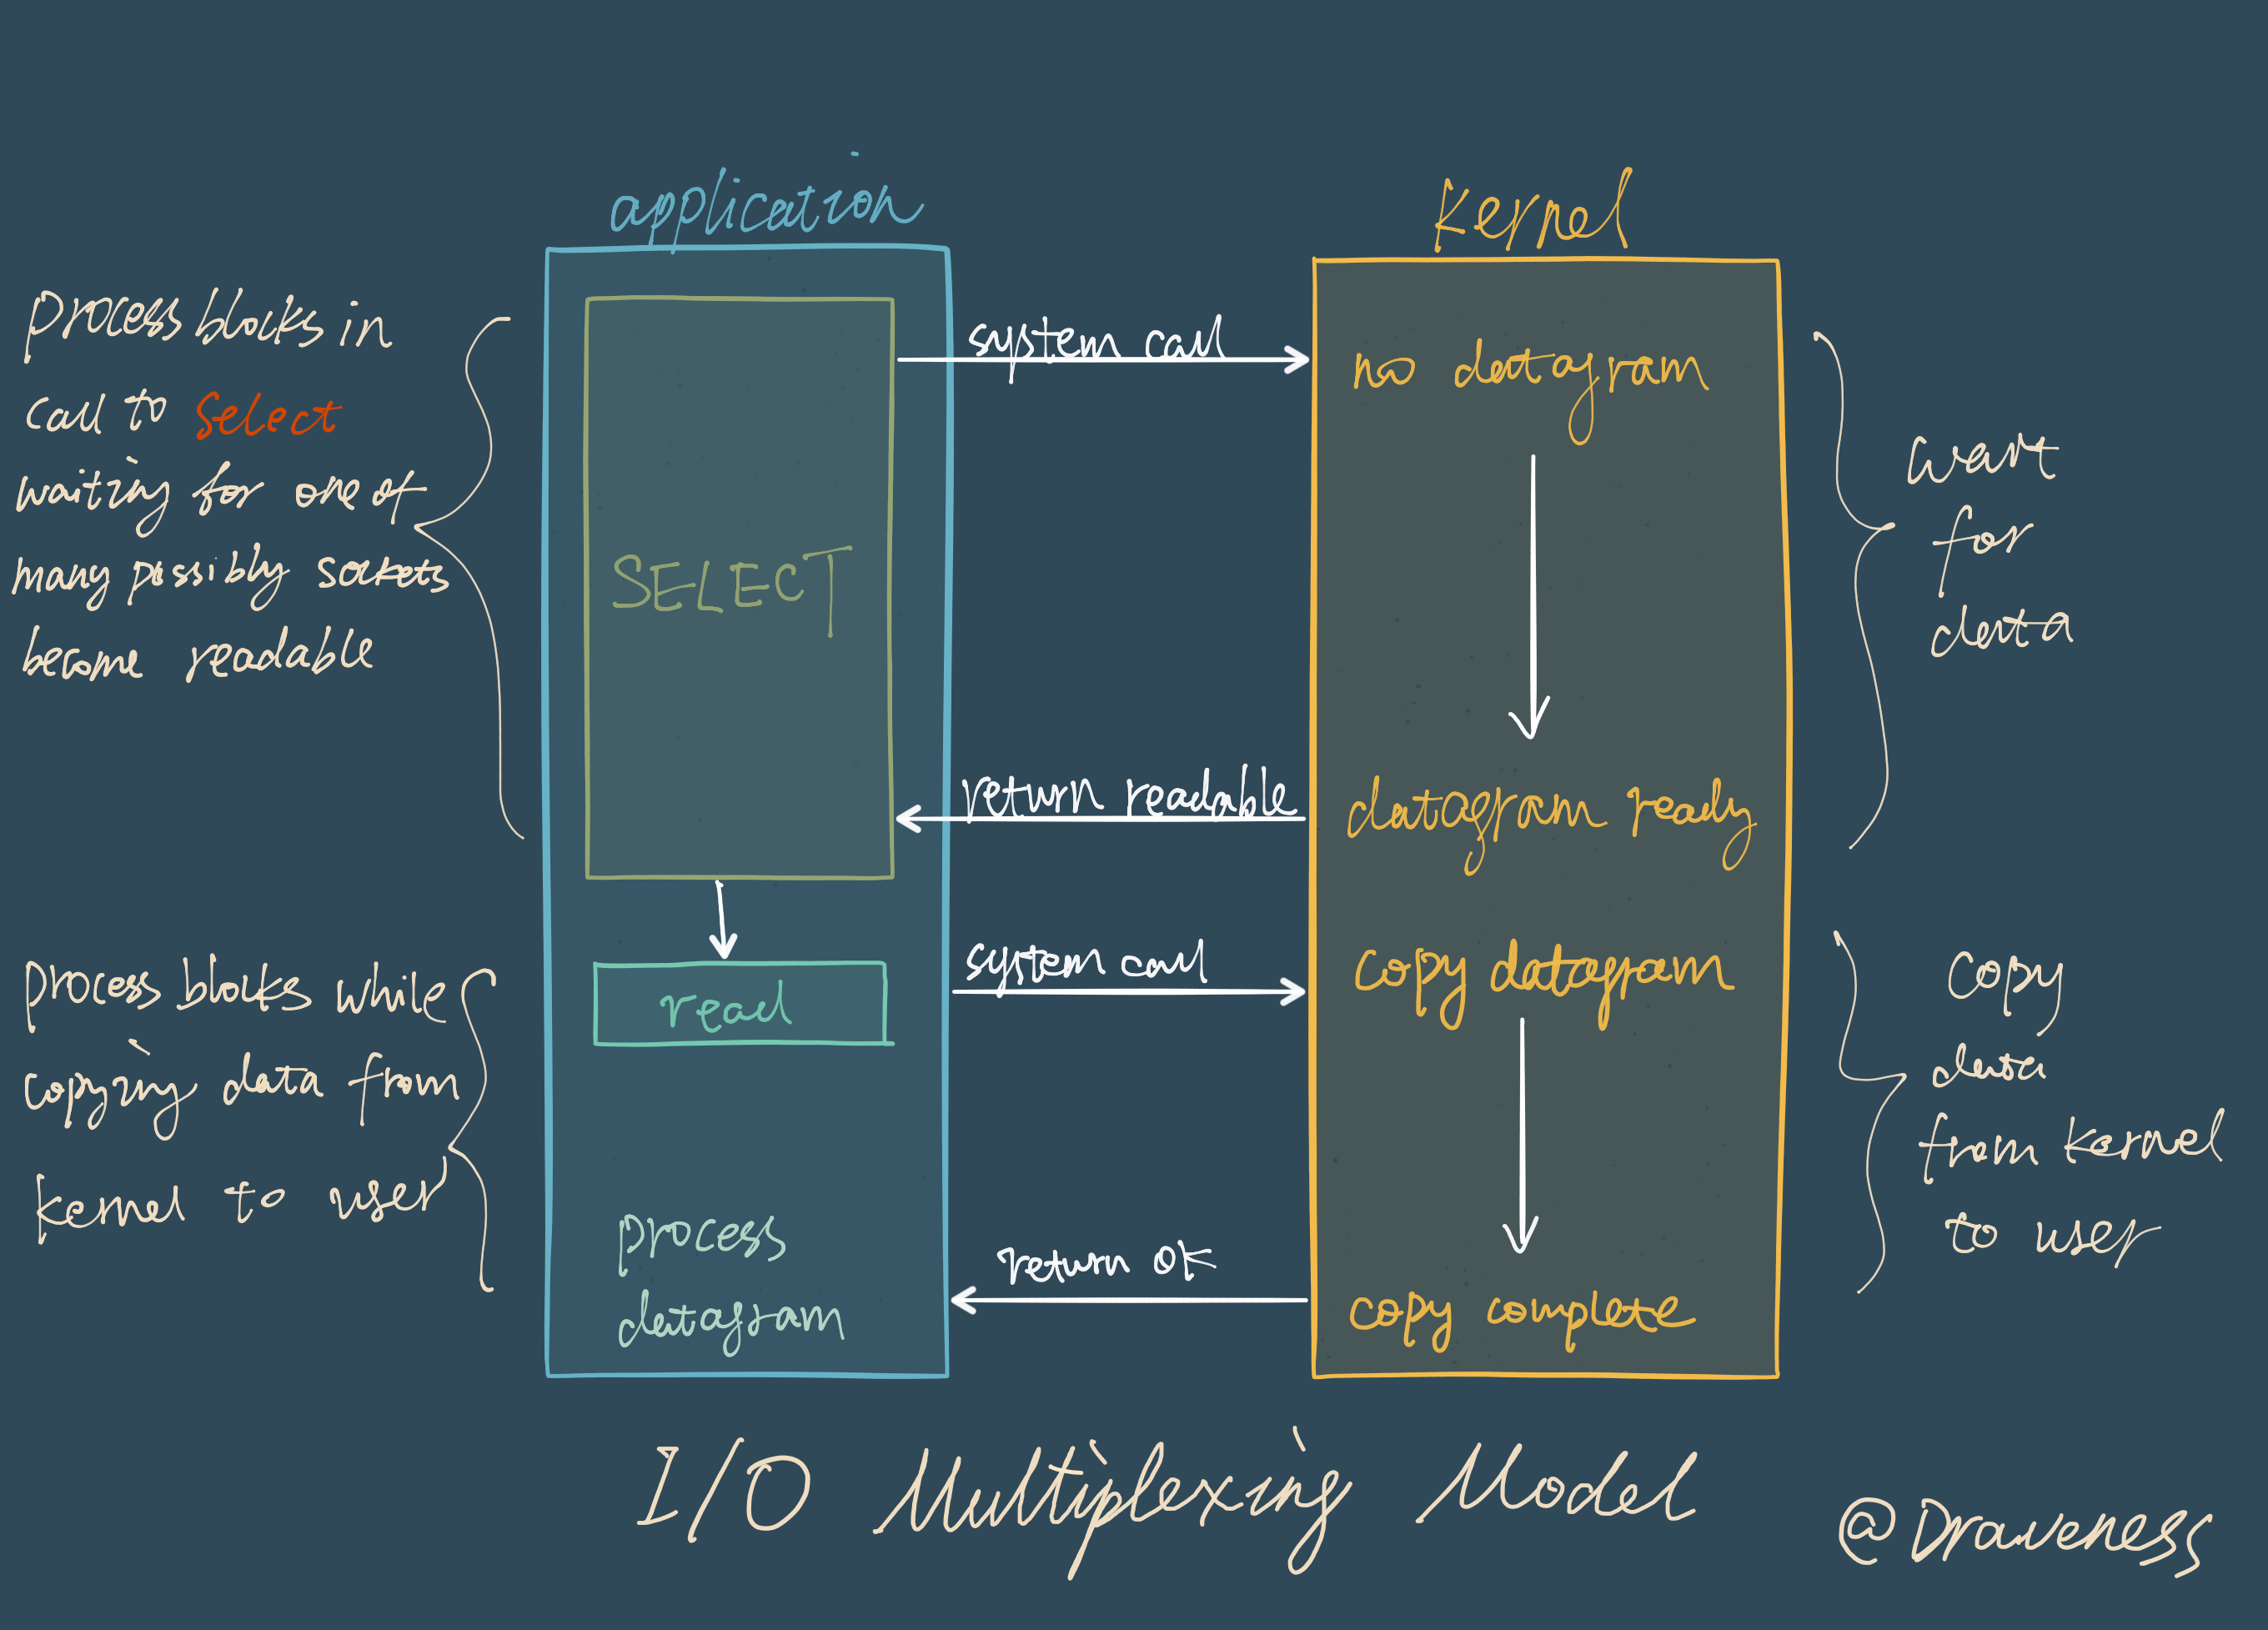 application
kernel
process blocks in
call to select
waiting for one of
many possibly sockets
become readable
SELECT
system call
no datagram
wait
for
data
return readable
datagram ready
process blocks while
copying data from
kernel to user
read
system call
copy datagram
copy
data
from kernel
to user
process
datagram
return OK
copy complete
I/O Multiplexing Model
@Draveness